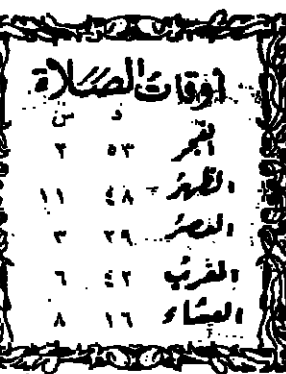 أوقات الصلاة
د س
الفجر ٥٣ ٣
الظهر ٤٨ ١١
العصر ٢٩ ٣
المغرب ٤٢ ٦
العشاء ١٦ ٨